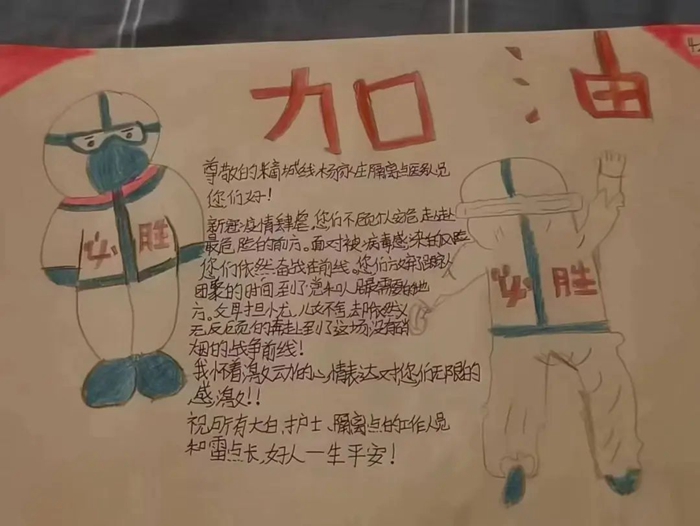 加油
尊敬的精诚线杨家庄隔离点医务人员
您们好!
新冠疫情肆虐,您们不顾个人安危走上
最危险的前方。面对被病毒感染的风险
您们依然奋战在前线。您们放弃了跟家人
团聚的时间,到了党和人民最需要的地
方。父母担心尤,儿女不舍,去依然义
无反顾的奔走到了这场没有硝
烟的战争前线!
我怀着激动的心情表达对您们无限的
感激!!
祝所有大白,护士、隔离点的工作人员
和雷点长,好人一生平安!
必胜
必胜